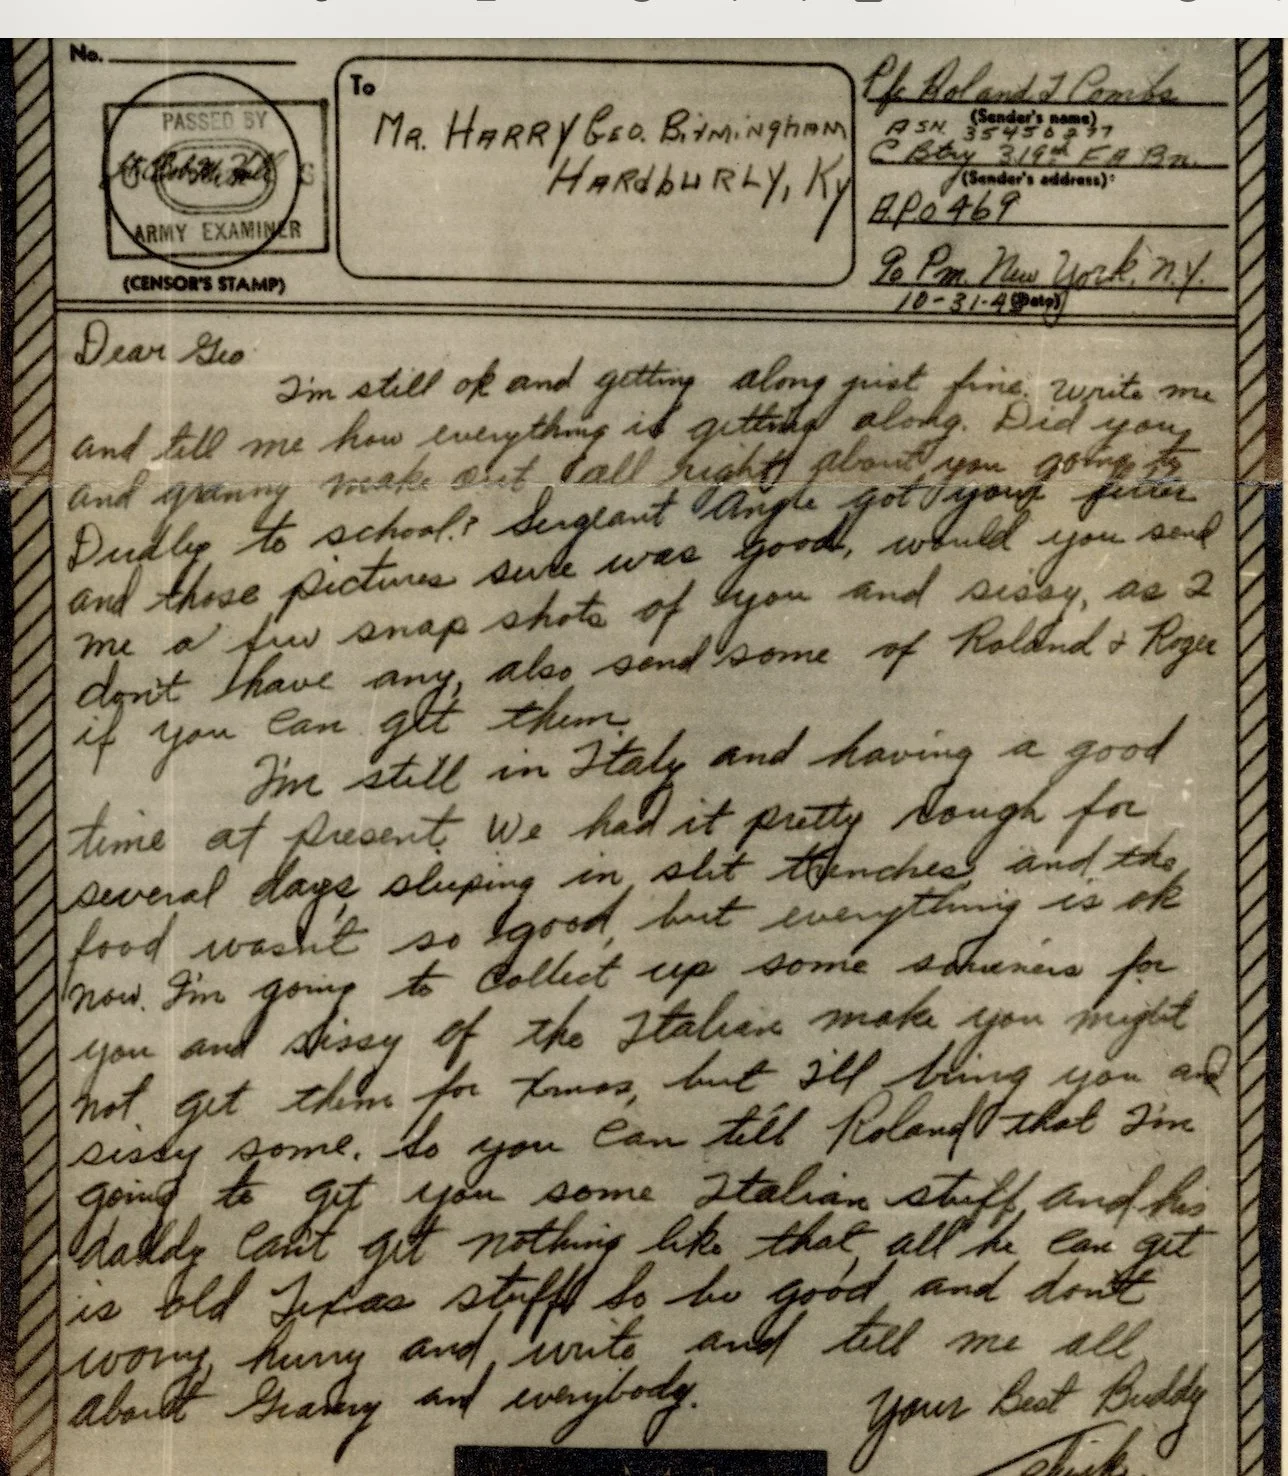 No.
PASSED BY
U S
ARMY EXAMINER
(CENSOR'S STAMP)
To
MR. HARRY GEO. BIRMINGHAM
HARDBURLY, KY
Pfc Roland T Combs
(Sender's name)
ASN 35450277
C Btry 319th F A Bn.
(Sender's address)
APO 469
℅ Pm. New York, N.Y.
10-31-43
(Date)
Dear Geo
I'm still ok and getting along just fine. Write me
and tell me how everything is getting along. Did you
and granny make out all right about you going to
Dudley to school? Sergeant Angle got your letter
and those pictures sure was good, would you send
me a few snap shots of you and sissy, as I
don't have any, also send some of Roland & Roger
if you can get them.
I'm still in Italy and having a good
time at present. We had it pretty rough for
several days, sleeping in slit trenches, and the
food wasn't so good, but everything is ok
now. I'm going to collect up some souvenirs for
you and sissy of the Italian make you might
not get them for Xmas, but I'll bring you and
sissy some. So you can tell Roland that I'm
going to get you some Italian stuff, and his
daddy can't get nothing like that, all he can get
is old Texas stuff. So be good and don't
worry, hurry and write and tell me all
about Granny and everybody.
Your Best Buddy